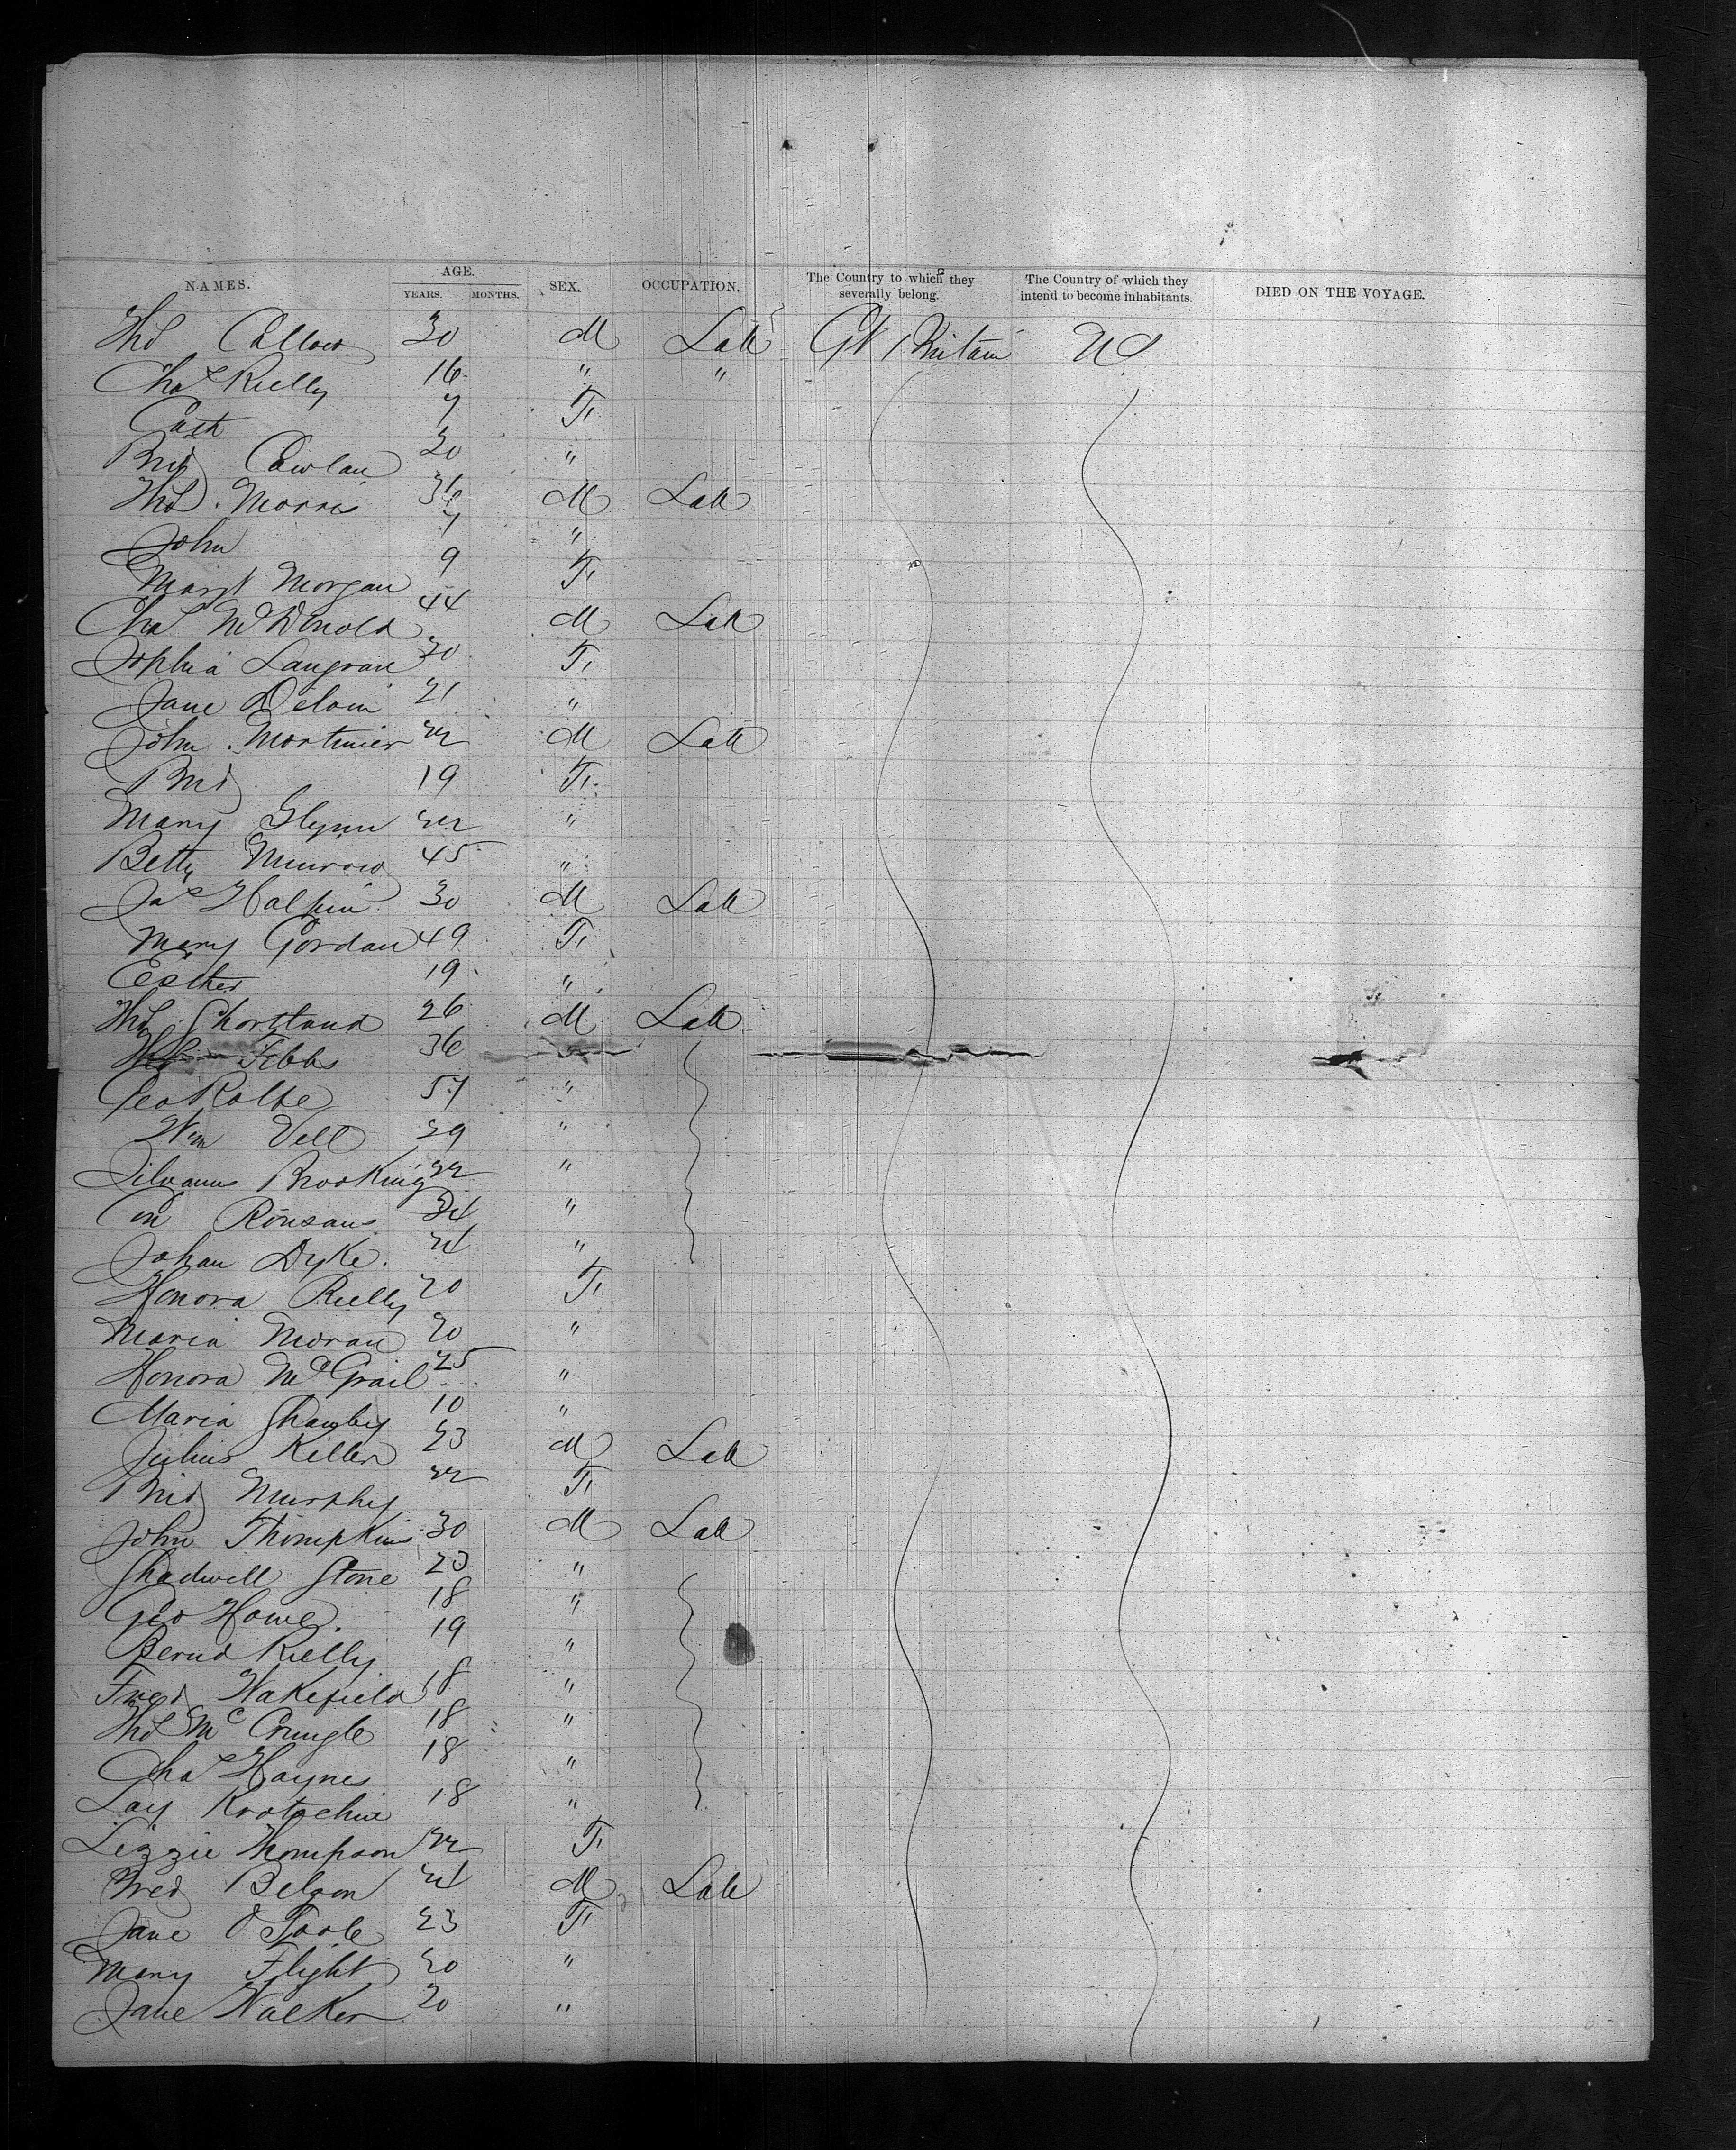 NAMES. AGE. YEARS. MONTHS. SEX. OCCUPATION. The Country to which they severally belong. The Country of which they intend to become inhabitants. DIED ON THE VOYAGE.
Thos Callow 30 M Labr Gt Britain US
Chas Rielly 16 " "
Cath 7 F
Brid Cawlan 20 "
Thos Morris 36 M Lab
John 7 "
Margt Morgan 9 F
Chas McDonold 44 M Lab
Sophia Langran 20 F
Jane Deloin 21 "
John Mortimer 22 M Lab
Brid 19 F
Mary Glynn 22 "
Betty Munrow 45 "
Jas Halpin 30 M Lab
Mary Gordan 49 F
Esther 19 "
Thos Shortland 26 M Lab
Tibbs 36
Geo Rolfe 57 "
Wm Vell 29 "
Silvanus Brooking 22 "
Con Ronsans 24 "
Johan Dyke. 24 "
Honora Rielly 20 F
Maria Moran 20 "
Honora McGrail 25 "
Maria Shamby 10 "
Julius Keller 23 M Lab
Brid Murphy 22 F
John Thompkins 30 M Lab
Shadwell Stone 23 "
Geo Howe. 18 "
Bernd Rielly 19 "
Fred Wakefield 18 "
Thos Mc Cringle 18 "
Chas Haynes 18 "
Lay 18 "
Lizzie Thompson 22 F
Fred Belson 24 M Lab
Jane O Toole 23 F
Mary Flight 20 "
Jane Walker 20 "